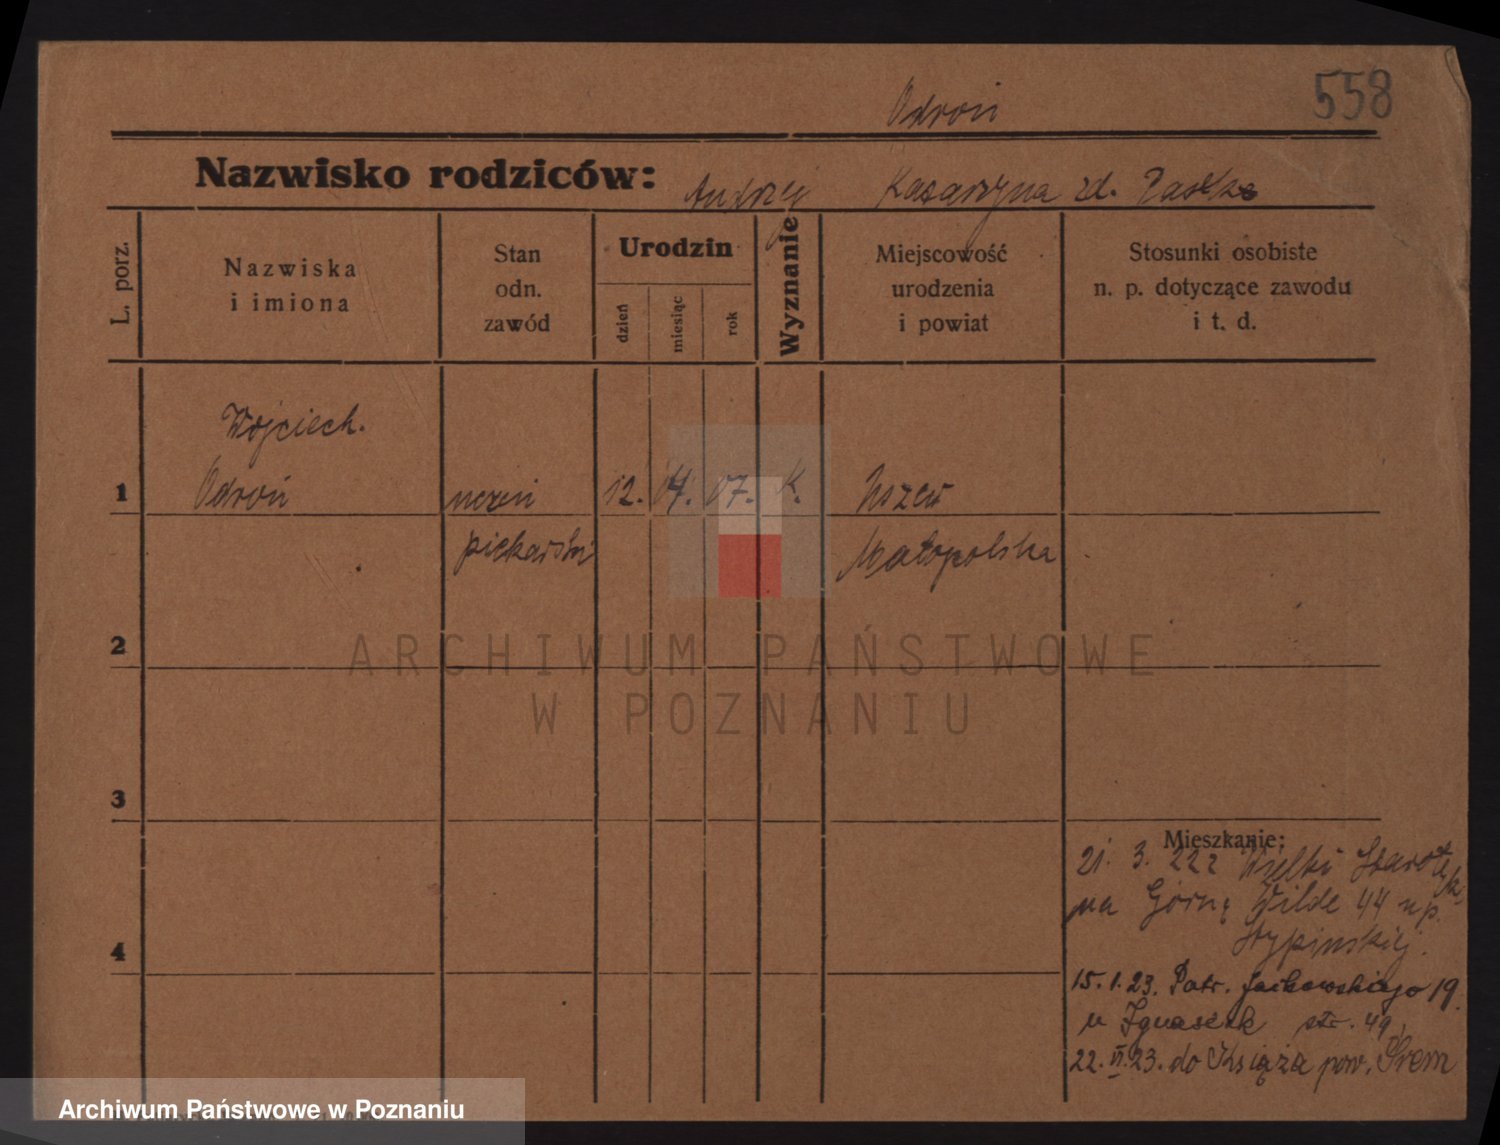 Odroń 558
Nazwisko rodziców: Andrzej Katarzyna zd.
L. porz.
Nazwiska
i imiona
Stan
odn.
zawód
Urodzin
dzień
miesiąc
rok
Wyznanie
Miejscowość
urodzenia
i powiat
Stosunki osobiste
n. p. dotyczące zawodu
i t. d.
Wojciech.
1 Odroń uczeń 12. 04. 07. K. Uszew
piekarski Małopolska
2
ARCHIWUM PAŃSTWOWE
W POZNANIU
3
Mieszkanie:
21. 3. 22 z Starołęk
na Górną Wilde 44 u p.
Stypińskiej.
4
15. 1. 23. Patr. Jackowskiego 19.
u Ignaszak str. 49,
22. VI. 23. do Książa pow. Śrem
Archiwum Państwowe w Poznaniu